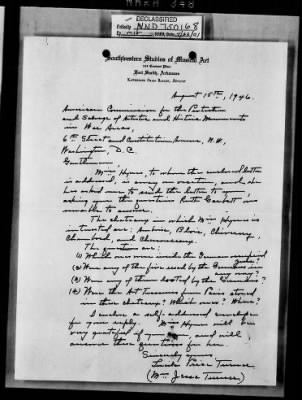 DECLASSIFIED
Authority NND 750168
Southwestern Studies of Musical Art
Fort Smith, Arkansas
August 15th, 1946.
American Commission for the Protection
and Salvage of Artistic and Historic Monuments
in War Areas,
6th Street and Constitution Avenue, N.W.
Washington, D.C.
Gentlemen:
Miss Hymes, to whom the enclosed letter
is addressed, is my
has asked me to send the letter to you
asking you the questions Ruth Garbett is
unable to answer.
The chateaux in which Miss Hymes is
interested are: Amboise, Blois, Cheverny,
Chambord, and Chenonceaux.
The questions are:
(1) Which ones were inside the German occupied
(2) Were any of the five used by the Germans in any way?
(3) Were any of them looted by the Germans?
(4) Were the Art Treasures from Paris stored
in these chateaux? Which ones? Where?
I enclose a self-addressed envelope
for your reply. Miss Hymes will be
very grateful if you can and will
answer these questions for her.
Sincerely yours
Price Turner
(Mrs. Jesse Turner)